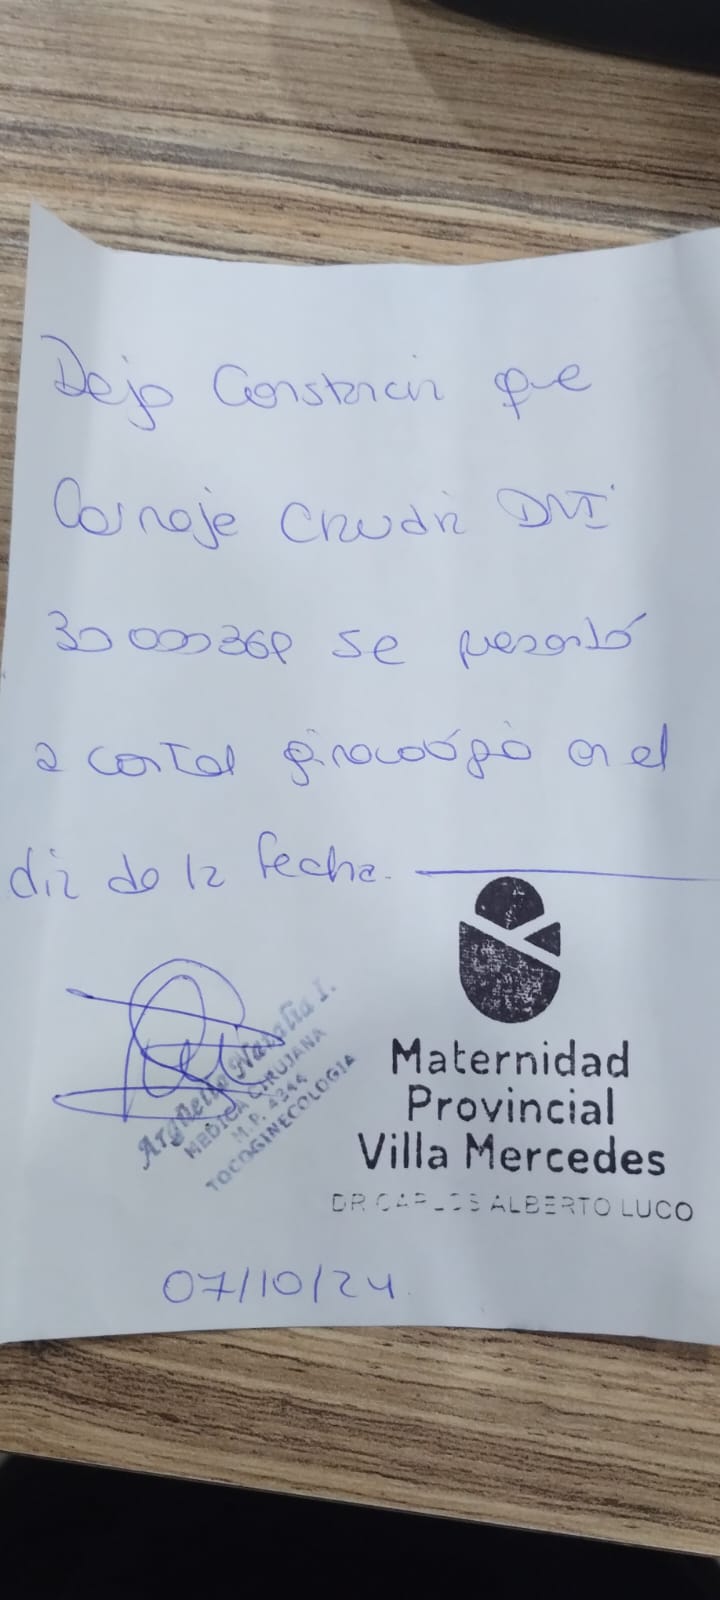 Dejo Constancia que
Corneje Claudia DNI
30 000368 se presentó
a control ginecológico en el
día de la fecha.
Argüello Natalia I.
MEDICA CIRUJANA
M.P. 4244
TOCOGINECOLOGIA
Maternidad
Provincial
Villa Mercedes
DR CARLOS ALBERTO LUCO
07/10/24